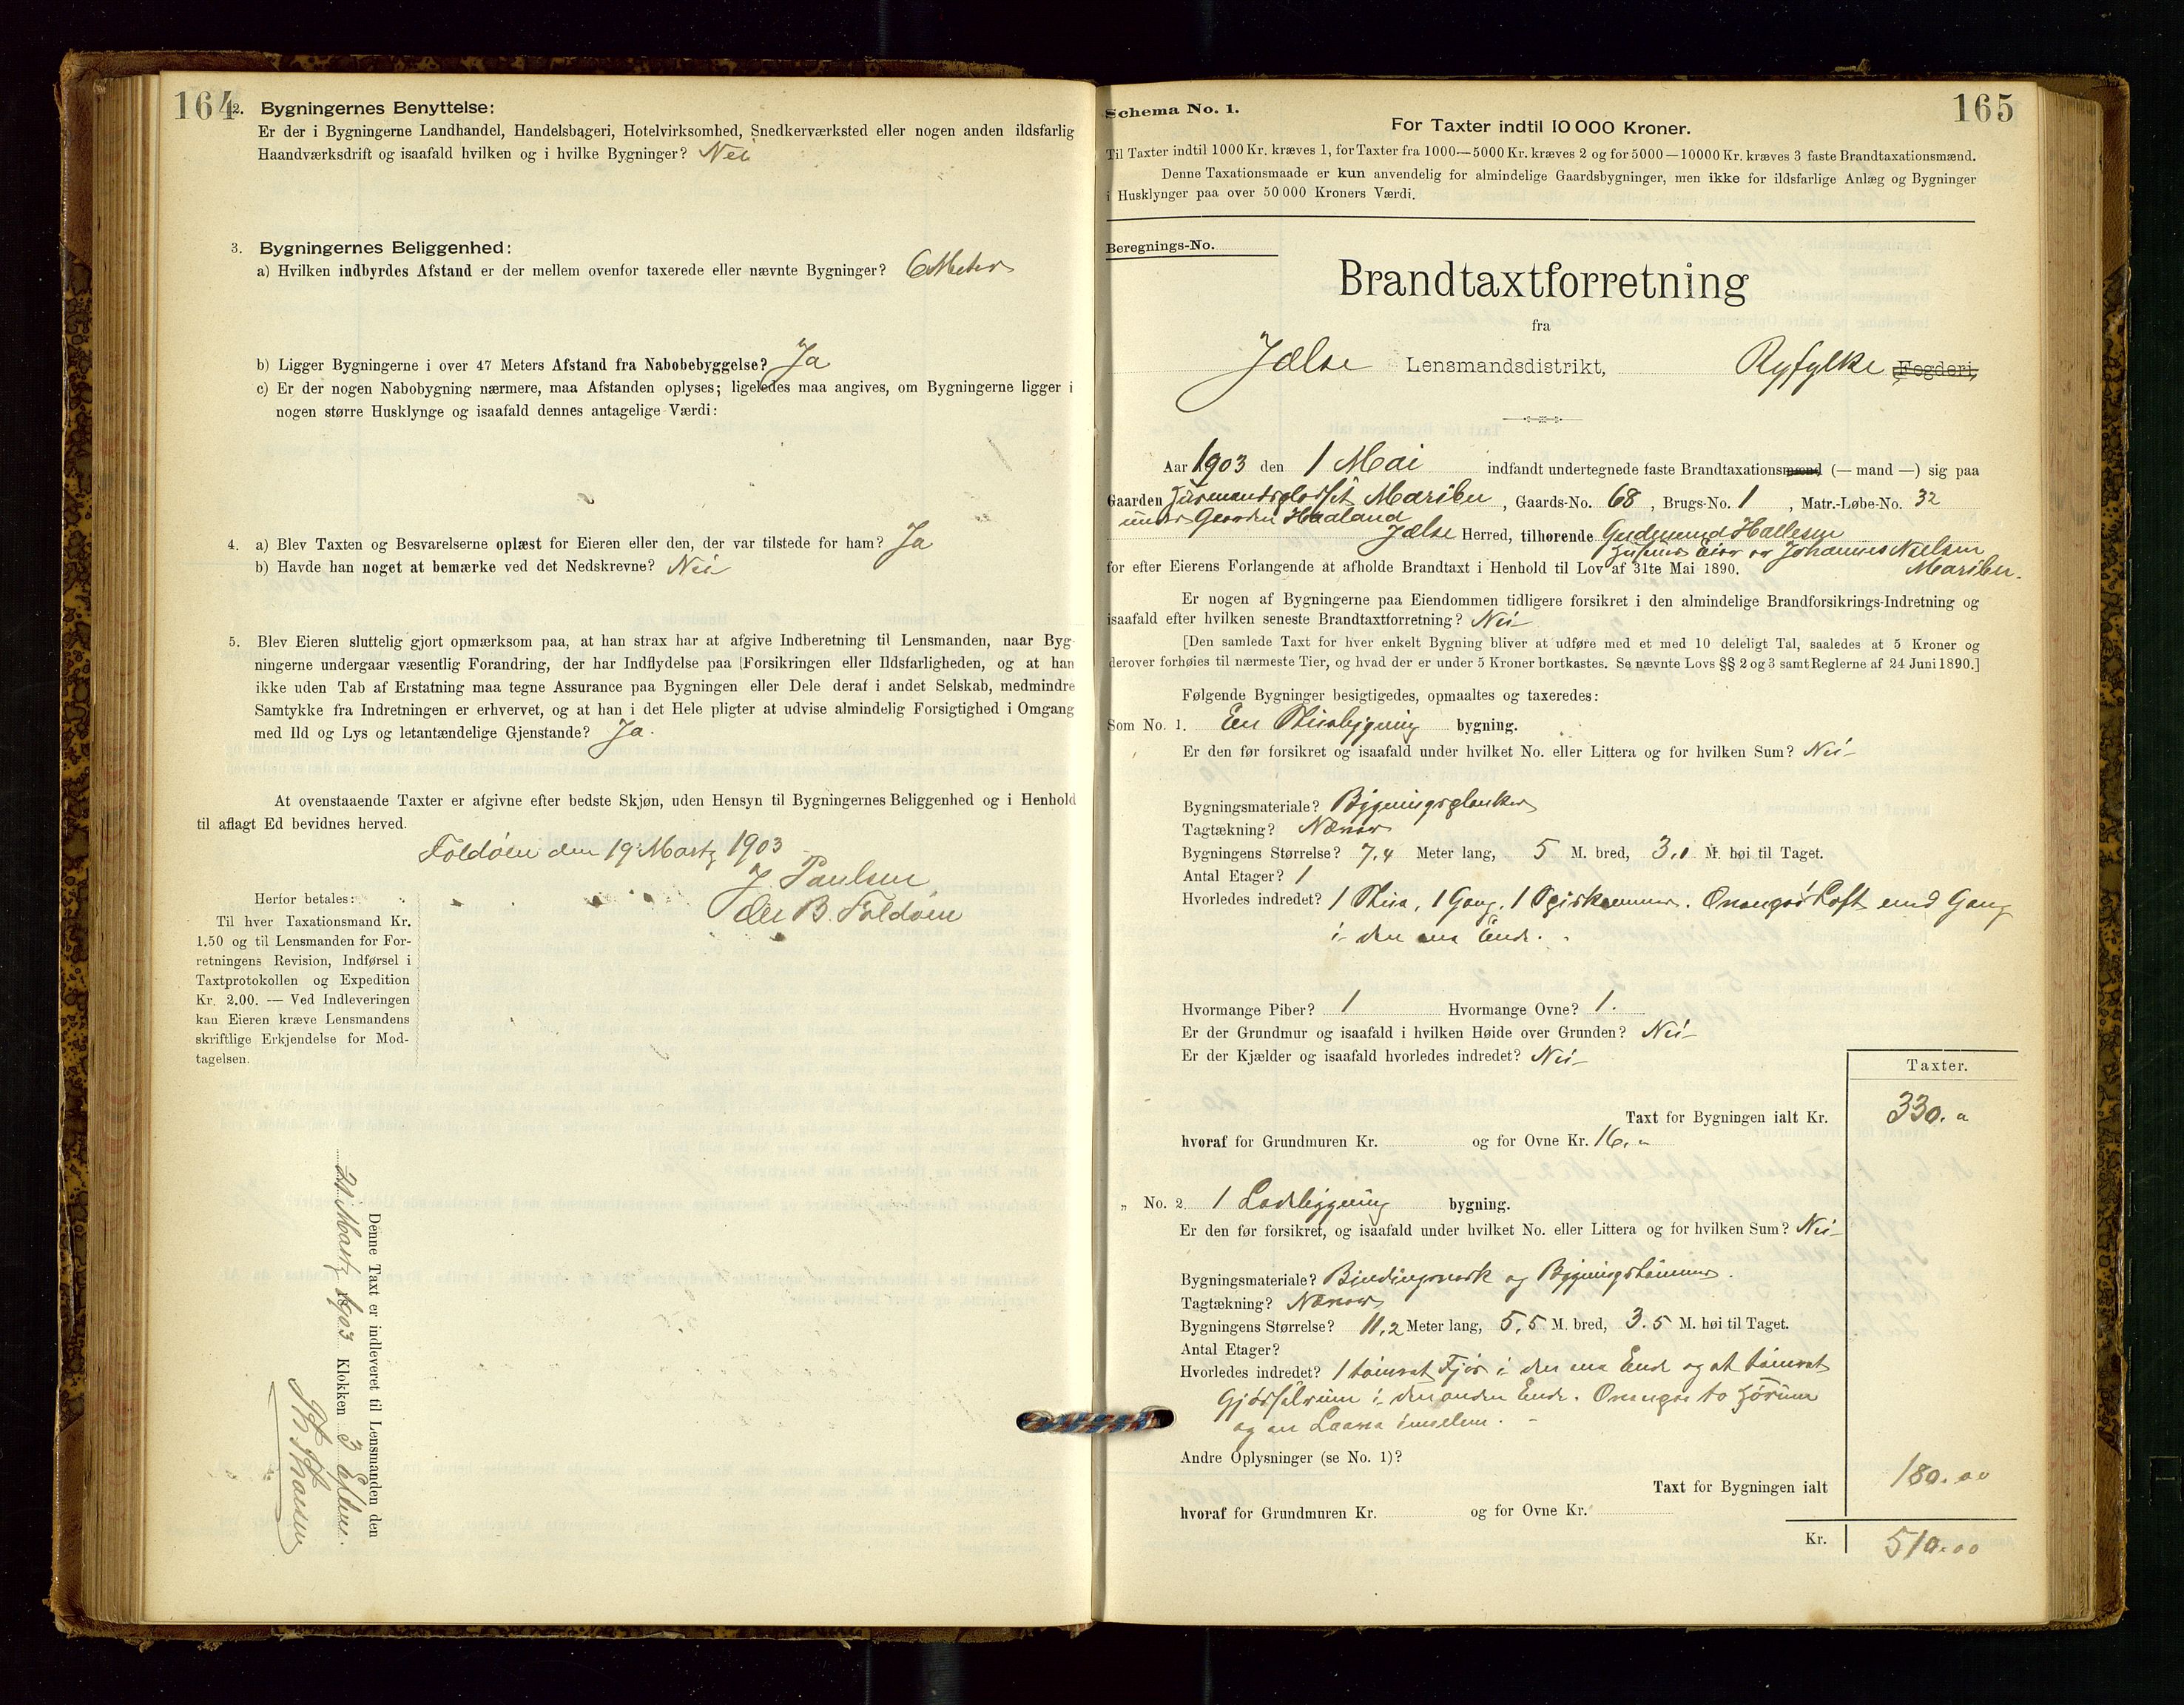 164
2. Bygningernes Benyttelse:
Er der i Bygningerne Landhandel, Handelsbageri, Hotelvirksomhed, Snedkerværksted eller nogen anden ildsfarlig
Haandværksdrift og isaafald hvilken og i hvilke Bygninger? Nei
3. Bygningernes Beliggenhed:
a) Hvilken indbyrdes Afstand er der mellem ovenfor taxerede eller nævnte Bygninger? 6 Meter
b) Ligger Bygningerne i over 47 Meters Afstand fra Nabobebyggelse? Ja
c) Er der nogen Nabobygning nærmere, maa Afstanden oplyses; ligeledes maa angives, om Bygningerne ligger i
nogen større Husklynge og isaafald dennes antagelige Værdi:
4. a) Blev Taxten og Besvarelserne oplæst for Eieren eller den, der var tilstede for ham? Ja
b) Havde han noget at bemærke ved det Nedskrevne? Nei
5. Blev Eieren sluttelig gjort opmærksom paa, at han strax har at afgive Indberetning til Lensmanden, naar Byg-
ningerne undergaar væsentlig Forandring, der har Indflydelse paa Forsikringen eller Ildsfarligheden, og at han
ikke uden Tab af Erstatning maa tegne Assurance paa Bygningen eller Dele deraf i andet Selskab, medmindre
Samtykke fra Indretningen er erhvervet, og at han i det Hele pligter at udvise almindelig Forsigtighed i Omgang
med Ild og Lys og letantændelige Gjenstande? Ja.
At ovenstaaende Taxter er afgivne efter bedste Skjøn, uden Hensyn til Bygningernes Beliggenhed og i Henhold
til aflagt Ed bevidnes herved.
Foldøen den 19 Martz 1903
J Paulsen
Ole B. Foldøen
Herfor betales:
Til hver Taxationsmand Kr.
1.50 og til Lensmanden for For-
retningens Revision, Indførsel i
Taxtprotokollen og Expedition
Kr. 2.00. — Ved Indleveringen
kan Eieren kræve Lensmandens
skriftlige Erkjendelse for Mod-
tagelsen.
Denne Taxt er indleveret til Lensmanden den
21 Martz 1903 Klokken 3
165
Schema No. 1.
For Taxter indtil 10 000 Kroner.
Til Taxter indtil 1000 Kr. kræves 1, for Taxter fra 1000—5000 Kr. kræves 2 og for 5000—10000 Kr. kræves 3 faste Brandtaxationsmænd.
Denne Taxationsmaade er kun anvendelig for almindelige Gaardsbygninger, men ikke for ildsfarlige Anlæg og Bygninger
i Husklynger paa over 50 000 Kroners Værdi.
Beregnings-No.
Brandtaxtforretning
fra
Jælse Lensmandsdistrikt, Ryfylke Fogderi,
Aar 1903 den 1 Mai indfandt undertegnede faste Brandtaxationsmænd (— mand —) sig paa
Gaarden Husmandspladset Maribu, Gaards-No. 68, Brugs-No. 1, Matr.-Løbe-No. 32
under Gaarden Haaland
Jælse Herred, tilhørende Gudmund Hallesen
Husenes Eier er Johannes Nielsen
for efter Eierens Forlangende at afholde Brandtaxt i Henhold til Lov af 31te Mai 1890. Maribu.
Er nogen af Bygningerne paa Eiendommen tidligere forsikret i den almindelige Brandforsikrings-Indretning og
isaafald efter hvilken seneste Brandtaxtforretning? Nei
[Den samlede Taxt for hver enkelt Bygning bliver at udføre med et med 10 deleligt Tal, saaledes at 5 Kroner og
derover forhøies til nærmeste Tier, og hvad der er under 5 Kroner bortkastes. Se nævnte Lovs §§ 2 og 3 samt Reglerne af 24 Juni 1890.]
Følgende Bygninger besigtigedes, opmaaltes og taxeredes:
Som No. 1. En Stuebygning bygning.
Er den før forsikret og isaafald under hvilket No. eller Littera og for hvilken Sum? Nei
Bygningsmateriale? Bygningsplanker
Tagtækning? Næver
Bygningens Størrelse? 7,4 Meter lang, 5 M. bred, 3,1 M. høi til Taget.
Antal Etager? 1
Hvorledes indredet? 1 Stue, 1 Gang, 1 Spiskammer. Ovenpaa Loft med Gang
i den ene Ende.
Hvormange Piber? 1 Hvormange Ovne? 1.
Er der Grundmur og isaafald i hvilken Høide over Grunden? Nei
Er der Kjælder og isaafald hvorledes indredet? Nei
Taxter.
Taxt for Bygningen ialt Kr. 330. "
hvoraf for Grundmuren Kr. og for Ovne Kr. 16. "
„ No. 2. 1 Ladebygning bygning.
Er den før forsikret, og isaafald under hvilket No. eller Littera og for hvilken Sum? Nei
Bygningsmateriale? Bindingsverk og Bygningstømmer.
Tagtækning? Næver
Bygningens Størrelse? 11,2 Meter lang, 5,5 M. bred, 3.5 M. høi til Taget.
Antal Etager?
Hvorledes indredet? 1 tømret Fjøs i den ene Ende og et tømret
i den anden Ende. Ovenpaa to Hørum
og en Laave imellem.
Andre Oplysninger (se No. 1)?
Taxt for Bygningen ialt 180.00
hvoraf for Grundmuren Kr. og for Ovne Kr.
Kr. 510.00